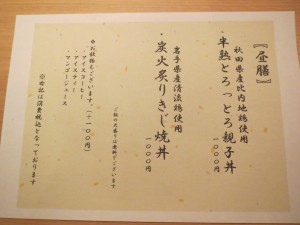 『昼膳』
秋田県産比内地鶏使用
・半熟とろっとろ親子丼
一〇〇〇円
岩手県産清流鶏使用
・炭火炙りきじ焼丼
一〇〇〇円
ご飯の大盛りは無料でございます
※お飲物もございます。(+一〇〇円)
・アイスコーヒー
・アイスティー
・マンゴージュース
※表記は消費税込となっております